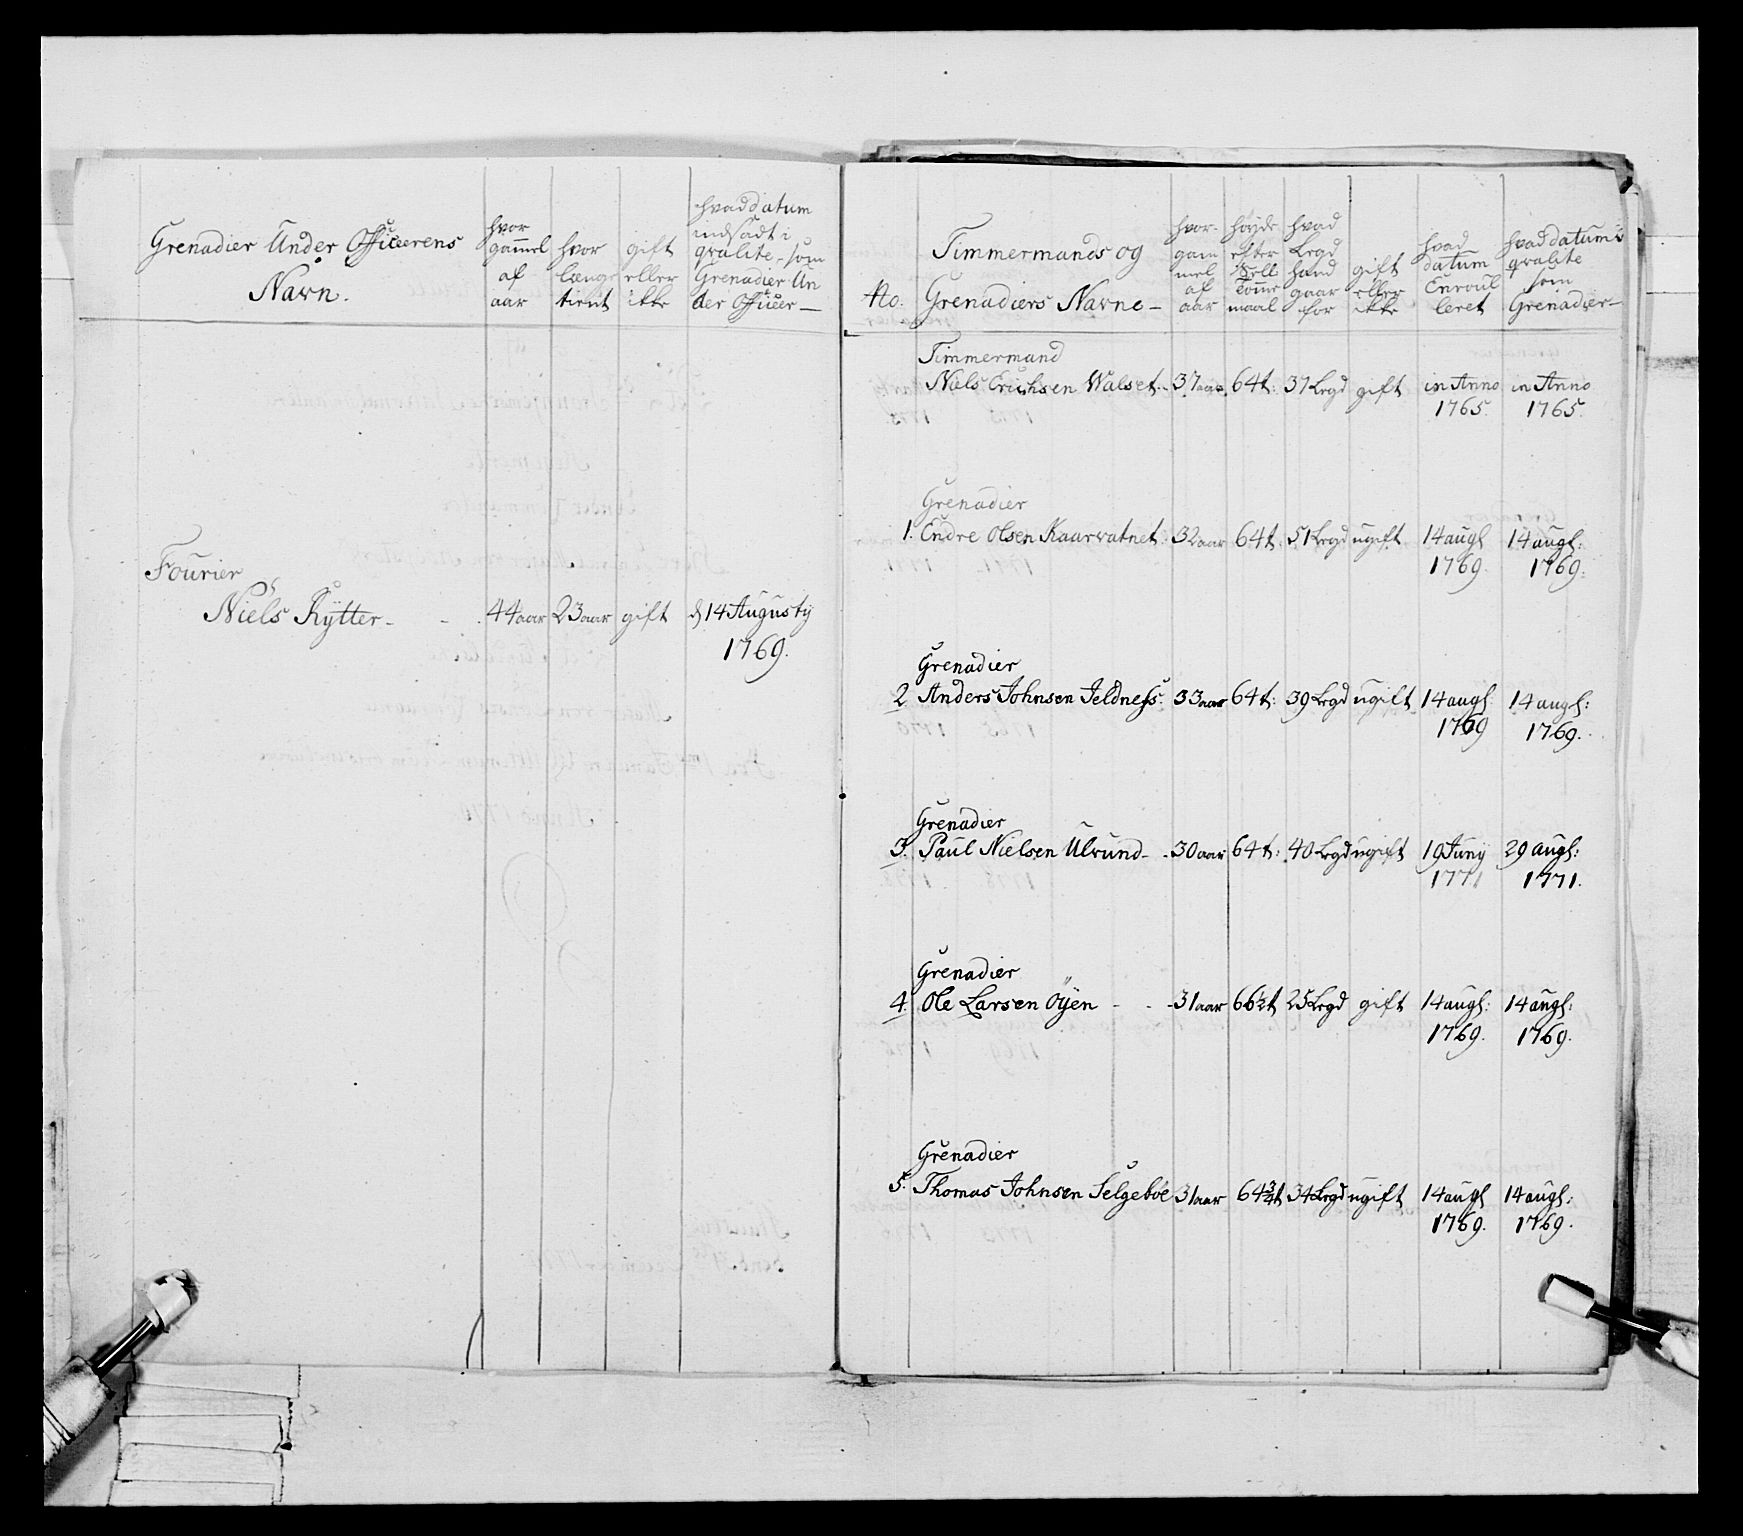 Grenadier Under Officeerens
Navn.
hvor
gammel
af
aar
hvor
længe
tient
gift
eller
ikke
hvad datum
indsadt i
qvalite, som
Grenadier Un
der Officer
Fourier
Niels Rÿtter - - . 44 aar 23 aar gift d 14 Augustij
1769.
No.
Timmermands og
Grenadiers Navne -
hvor-
gam
mel
af
aar
høyde
efter
Sell.
Tomme
maal
hvad
Legd
hand
gaar
for
gift
eller
ikke
hvad
datum
Enroul
leret
hvad datum i
qvalite
som
Grenadier
Timmermand
Niels Erichsen Walset - 37 aar 64 t. 37 Legd gift in Anno in Anno
1765. 1765.
Grenadier
1. Endre Olsen Kaarvatnet. 32 aar 64 t. 51 Legd ugift 14 augl 14 augl:
1769. 1769.
Grenadier
2. Anders Johnsen Jeldness. 33 aar 64 t: 39 Legd ugift 14 augl. 14 augl:
1769 1769.
Grenadier
3. Paul Nielsen Ulvund - - 30 aar 64 t: 40 Legd ugift 19 Junij 29 augl:
1771 1771.
Grenadier
4. Ole Larsen Øÿen - - - 31 aar 66½ t 25 Legd gift 14 augl: 14 augl:
1769. 1769.
Grenadier
5. Thomas Johnsen Selgebøe 31 aar 64¾ t 34 Legd ugift 14 augl 14 augl:
1769. 1769.